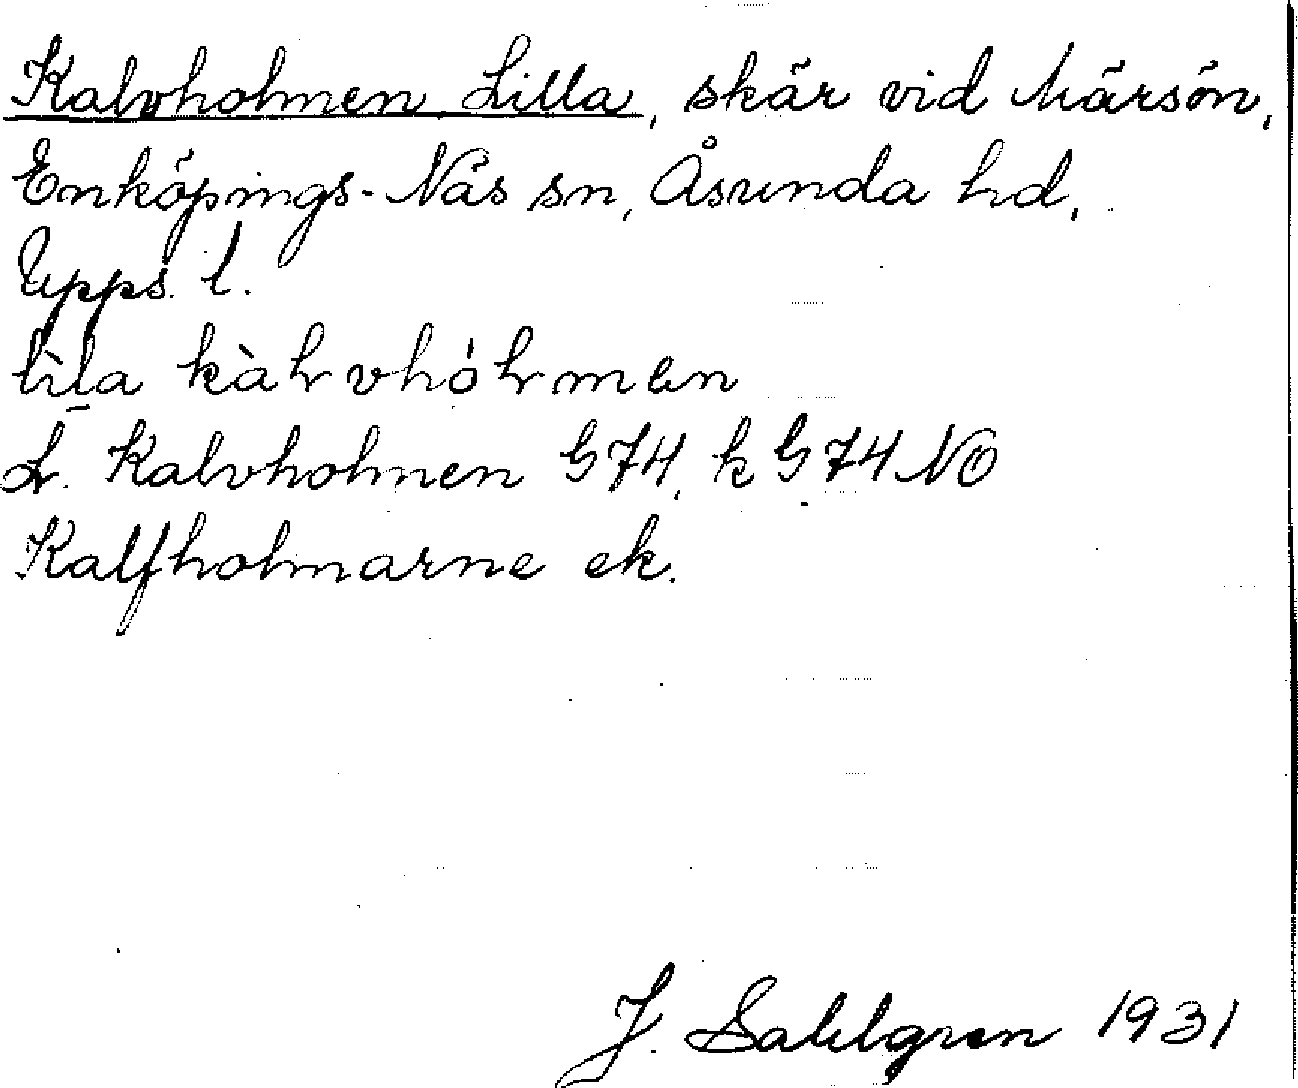 Kalvholmen Lilla, skär vid Märsön,
Enköpings-Näs sn, Åsunda hd,
Upps. l.
lìla kàlvhólmen
L. Kalvholmen G74, k G74 NO
Kalfholmarne ek.
J. Sahlgren 1931